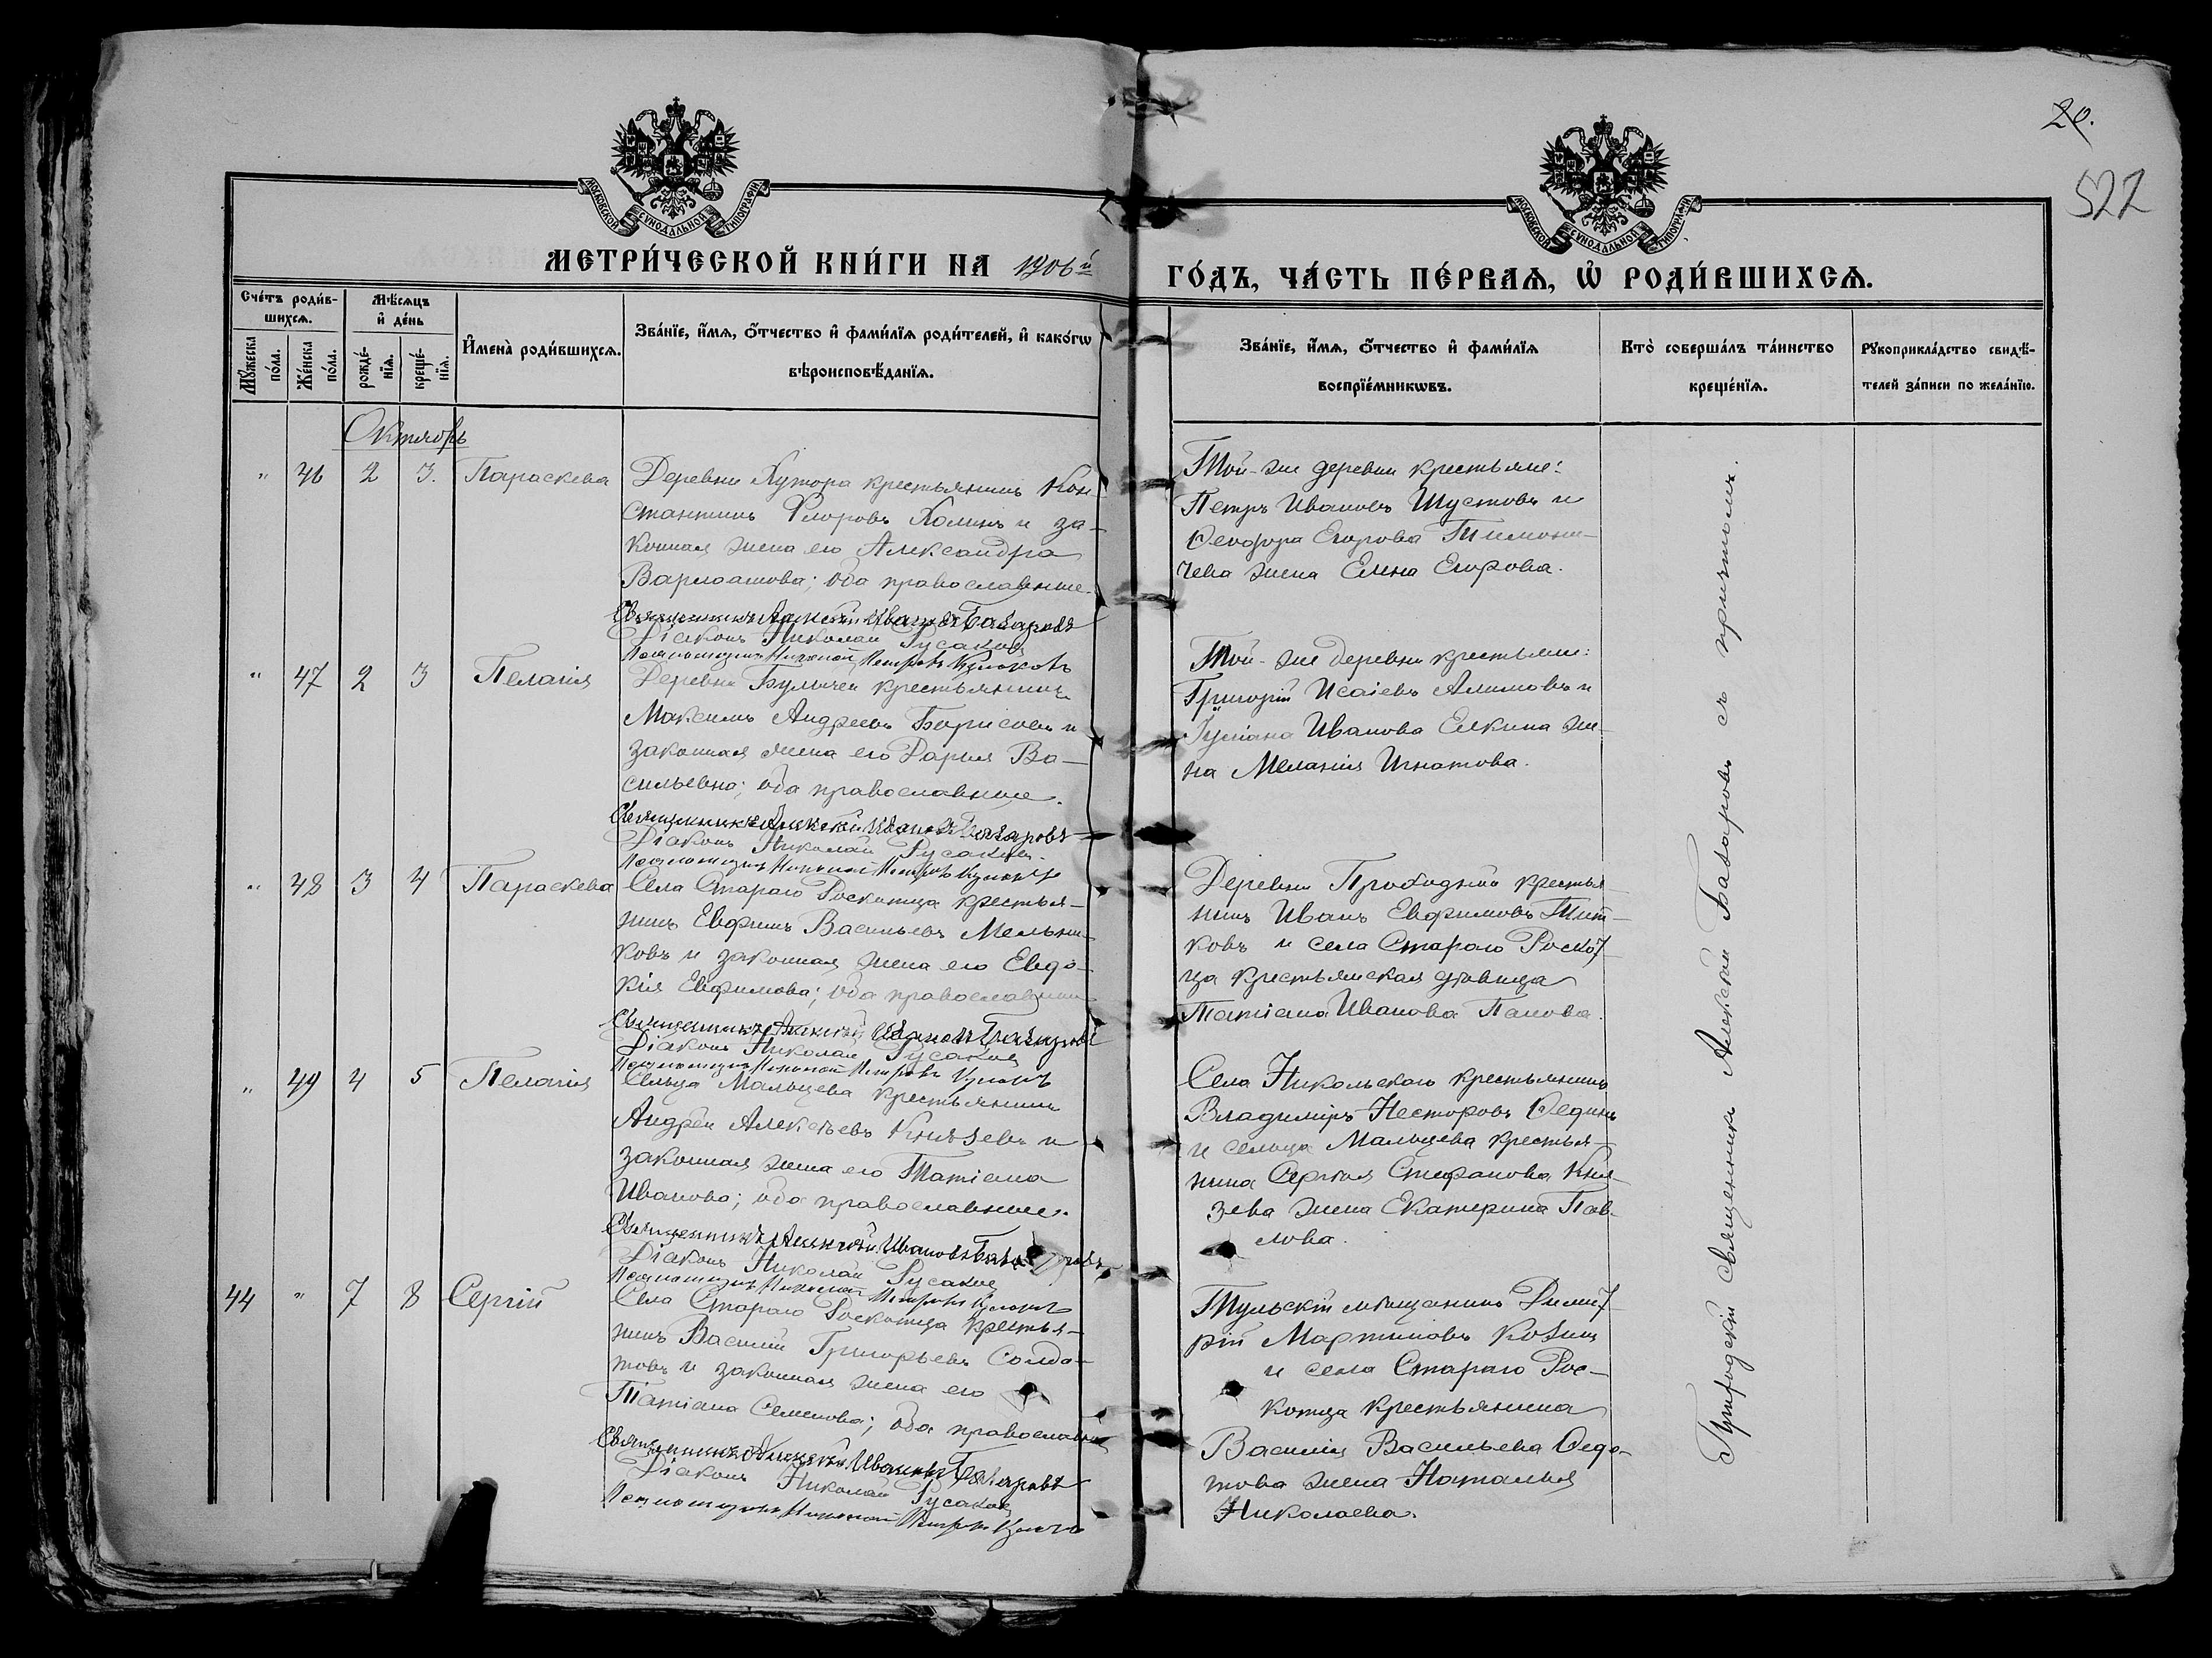 20.
522
МОСКОВСКОЙ СѴНОДАЛЬНОЙ ТИПОГРАФІИ
МОСКОВСКОЙ СѴНОДАЛЬНОЙ ТИПОГРАФІИ
МЕТРИ́ЧЕСКОЙ КНИ́ГИ НА 1906й
ГО́ДЪ, ЧА́СТЬ ПЕ́РВАѦ, Ѡ҆ РОДИ́ВШИХСѦ.
Сче́тъ роди́в-
шихсѧ.
Мꙋ́жеска по́ла.
Же́нска по́ла.
Мѣ́сѧцъ
и҆ де́нь
рожде́-
нїѧ.
креще́-
нїѧ.
И҆мена̀ роди́вшихсѧ.
Зва́нїе, и҆́мѧ, ѻ҆́тчество и҆ фами́лїѧ роди́телей, и҆ како́гѡ
вѣроисповѣ́данїѧ.
Зва́нїе, и҆́мѧ, ѻ҆́тчество и҆ фами́лїѧ
воспрїе́мникѡвъ.
Кто̀ соверша́лъ та́инство
креще́нїѧ.
Рꙋкоприкла́дство свидѣ́-
телей за́писи по жела́нїю.
Октябрь
" 46 2 3. Параскева
Деревни Хутора крестьянинъ Кон-
стантинъ Флоровъ Холинъ и за-
конная жена его Александра
Варлаамова; оба православные.
Священникъ Алексѣй Ивановъ Базаровъ
Діаконъ Николай Русаковъ
Псаломщикъ Николай Петровъ
Той-же деревни крестьяне:
Петръ Ивановъ Шустовъ и
Ѳеодора Егорова Тимони-
чева жена Елена Егорова.
" 47 2 3 Пелагія
Деревни Булычей крестьянинъ
Максимъ Андреевъ Борисовъ и
законная жена его Дарья Ва-
сильевна; оба православные.
Священникъ Алексѣй Ивановъ Базаровъ
Діаконъ Николай Русаковъ.
Псаломщикъ Николай Петровъ
Той-же деревни крестьяне:
Григорій Исаіевъ Алимовъ и
Іуліана Иванова Елкина же-
на Меланія Игнатова.
" 48 3 4 Параскева
Села Стараго Роскотца крестья-
нинъ Евфимъ Васильевъ Мельни-
ковъ и законная жена его Евдо-
кія Евфимова; оба православные
Священникъ Алексѣй Ивановъ Базаровъ
Діаконъ Николай Русаковъ
Псаломщикъ Николай Петровъ
Деревни Проходной крестья-
нинъ Иванъ Евфимовъ Тит-
ковъ и села Стараго Роскот-
ца крестьянская дѣвица
Татіана Иванова Панова.
" 49 4 5 Пелагія
Сельца Мальцева крестьянинъ
Андрей Алексѣевъ Князевъ и
законная жена его Татіана
Иванова; оба православные.
Священникъ Алексѣй Ивановъ Базаровъ
Діаконъ Николай Русаковъ
Псаломщикъ Николай Петровъ
Села Никольскаго крестьянинъ
Владиміръ Несторовъ Ѳединъ
и сельца Мальцева крестья-
нина Сергѣя Стефанова Кня-
зева жена Екатерина Пав-
лова.
44 " 7 8 Сергій
Села Стараго Роскотца крестья-
нинъ Василій Григорьевъ Солда-
товъ и законная жена его
Татіана Семенова; оба православные
Священникъ Алексѣй Ивановъ Базаровъ
Діаконъ Николай Русаковъ
Псаломщикъ Николай Петровъ
Тульскій мѣщанинъ Димит-
рій Мартиновъ
и села Стараго Рос-
котца крестьянина
Василія Васильева Ѳедо-
това жена Наталья
Николаева.
Приходскій священникъ Алексѣй Базаровъ съ причтомъ.